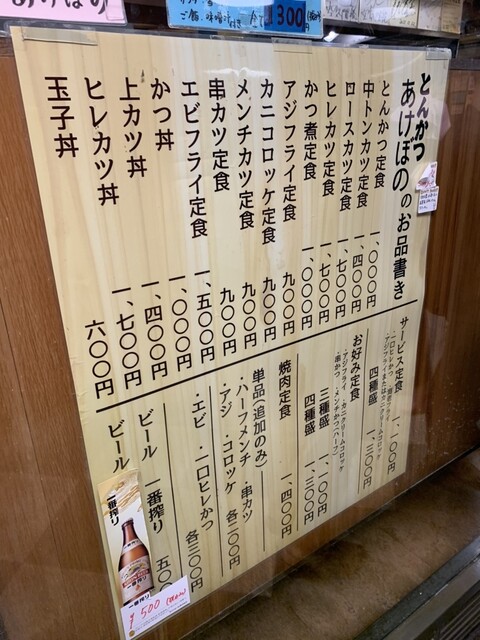 あけぼの
ご飯、味噌汁付き 全て1300円
とんかつ
あけぼののお品書き
とんかつ定食 一、〇〇〇円
中トンカツ定食 一、四〇〇円
ロースカツ定食 一、七〇〇円
ヒレカツ定食 一、七〇〇円
かつ煮定食 一、〇〇〇円
アジフライ定食 九〇〇円
カニコロッケ定食 九〇〇円
メンチカツ定食 九〇〇円
串カツ定食 九〇〇円
エビフライ定食 一、五〇〇円
かつ丼 一、〇〇〇円
上カツ丼 一、四〇〇円
ヒレカツ丼 一、七〇〇円
玉子丼 六〇〇円
サービス定食 一、一〇〇円
・一口ヒレかつ
・アジフライまたはカニクリームコロッケ
四種盛 一、三〇〇円
お好み定食
・アジフライ ・カニクリームコロッケ
・串かつ ・メンチかつ(ハーフ)
三種盛 一、一〇〇円
四種盛 一、三〇〇円
焼肉定食 一、四〇〇円
単品(追加のみ)
・ハーフメンチ ・串カツ
・アジ ・コロッケ 各二〇〇円
・エビ ・一口ヒレかつ 各三〇〇円
ビール 一番搾り 五〇
ビール
一番搾り
一番搾り
¥500